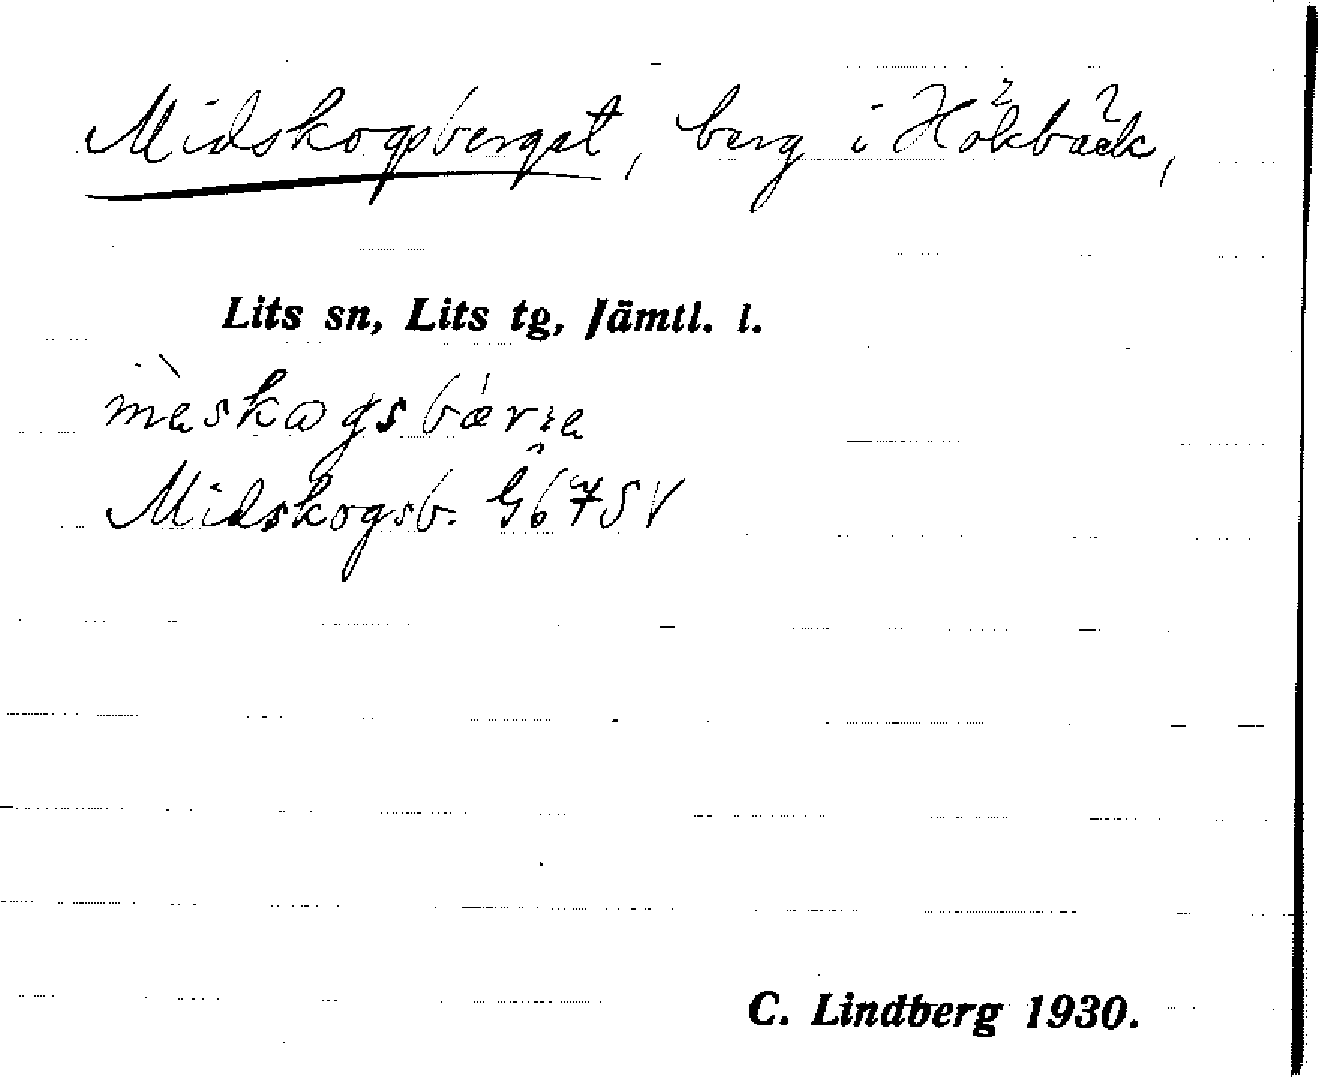 Midskogsberget, berg i Hökbäck,
Lits sn, Lits tg, Jämtl. l.
Midskogsb. Gb 67 SV
C. Lindberg 1930.